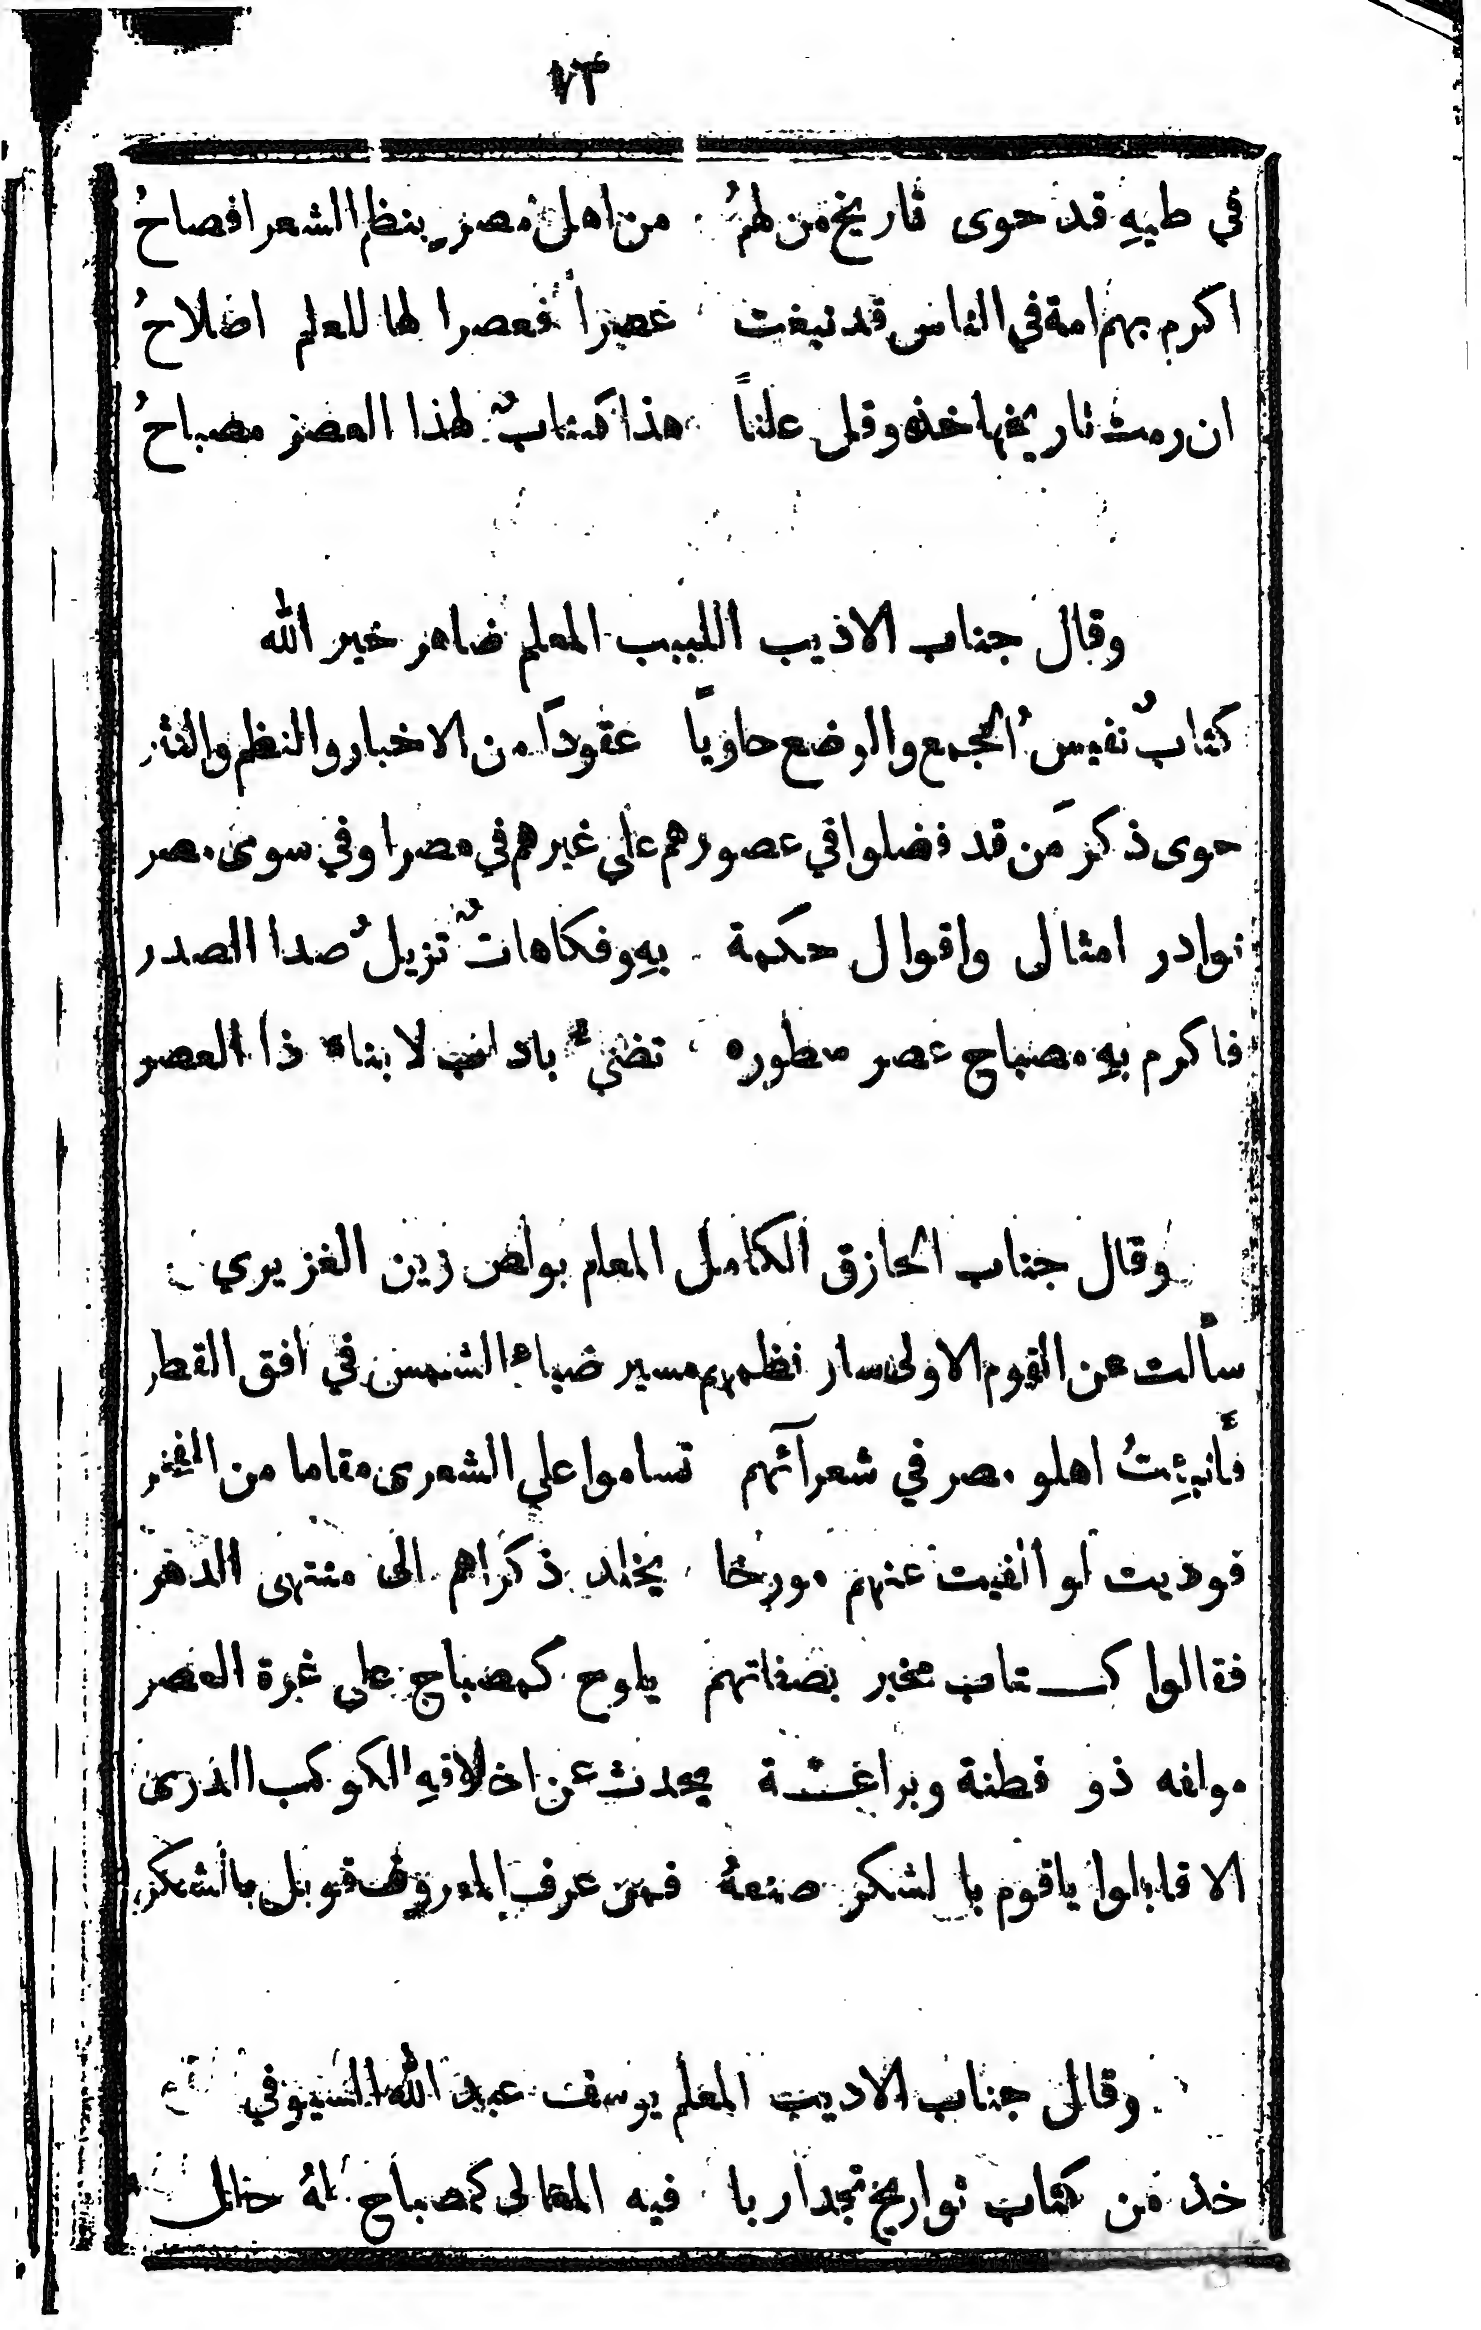 ٧٣
في طيهِ قد حوى تاريخ من لهمُ من اهل مصرٍ بنظم الشعر افصاحُ
اكرم بهم امة في الناس قد نبغت عصراً فعصرا لها للعلم اصلاحُ
ان رمت تاريخها خذه وقل علناً هذا كتابٌ لهذا العصر مصباحُ
وقال جناب الاديب اللبيب المعلم ضاهر خير الله
كتابٌ نفيسُ الجمع والوضع حاوياً عقوداً من الاخبار والنظم والنثر
حوى ذكر مَن قد فضلوا في عصورهم على غيرهم في مصر او في سوى مصر
نوادر امثال واقوال حكمة بهِ وفكاهاتٌ تزيلُ صدا الصدر
فاكرم بهِ مصباح عصر سطوره تضيءُ باداب لابناء ذا العصر
وقال جناب الحازق الكامل المعلم بولص زين الغزيري
سألت عن القوم الاولى سار نظمهم مسير ضياء الشمس في افق القطر
فأنبئِتُ اهلو مصر في شعرآئهم تساموا على الشعرى مقاما من الفخر
فوديت لو الفيت عنهم مورخا يخلد ذكراهم الى منتهى الدهر
فقالوا كـــتاب مخبر بصفاتهم يلوح كمصباح على غرة العصر
مولفه ذو فطنة وبراعـــة يحدث عن اخلاقهِ الكوكب الدرى
الا قابلوا ياقوم بالشكر صنعهُ فمن عرف المعروف قوبل بالشكر
وقال جناب الاديب المعلم يوسف عبد الله السيوفي
خذ من كتاب تواريخ تجد اربا فيه المقالى كمصباح لهُ خلل